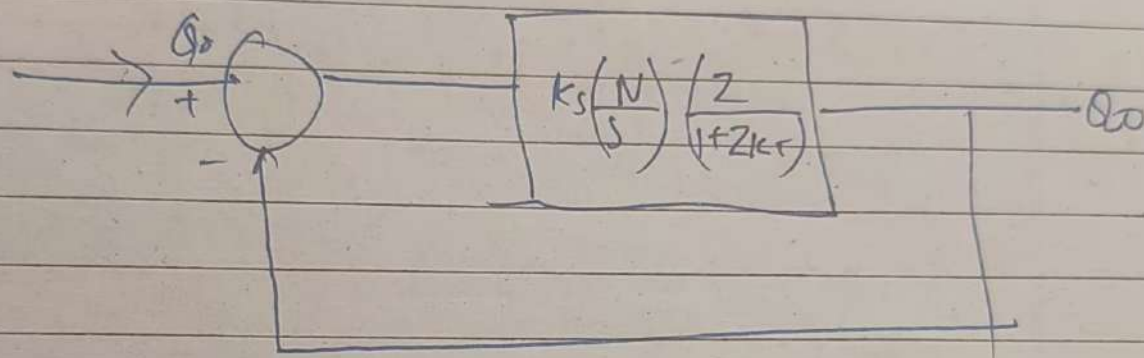 Qo
+
-
Ks(N/S) (Z/(1+ZKT))